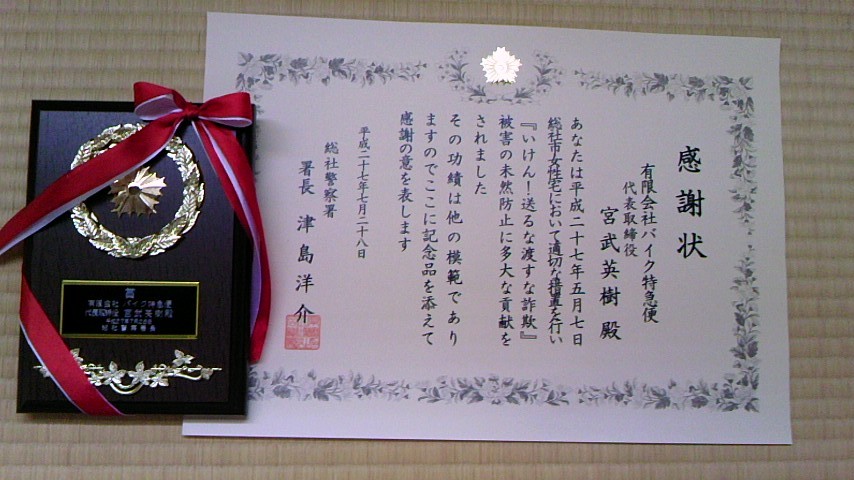 感謝状
有限会社バイク特急便
代表取締役
宮武英樹殿
あなたは平成二十七年五月七日
総社市女性宅において適切な措置を行い
『いけん!送るな渡すな詐欺』
被害の未然防止に多大な貢献を
されました
その功績は他の模範であり
ますのでここに記念品を添えて
感謝の意を表します
平成二十七年七月二十八日
総社警察署
署長 津島洋介
賞
有限会社 バイク特急便
代表取締役 宮武英樹殿
総社警察署長